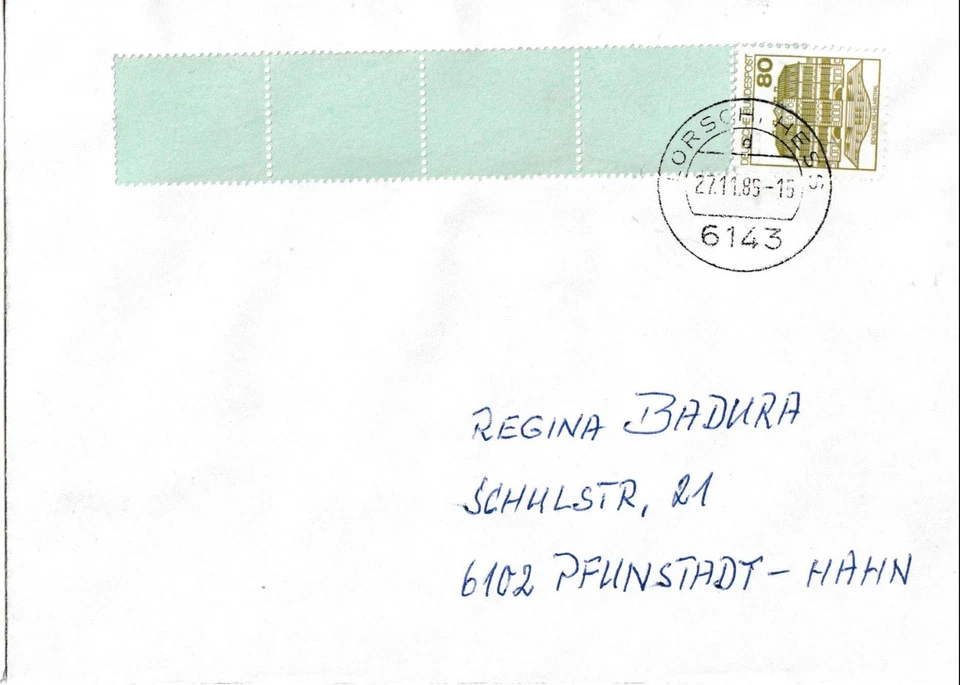 DEUTSCHE BUNDESPOST
80
LORSCH, HESS
d
27.11.86-15
6143
REGINA BADURA
SCHULSTR, 21
6102 PFUNSTADT - HAHN